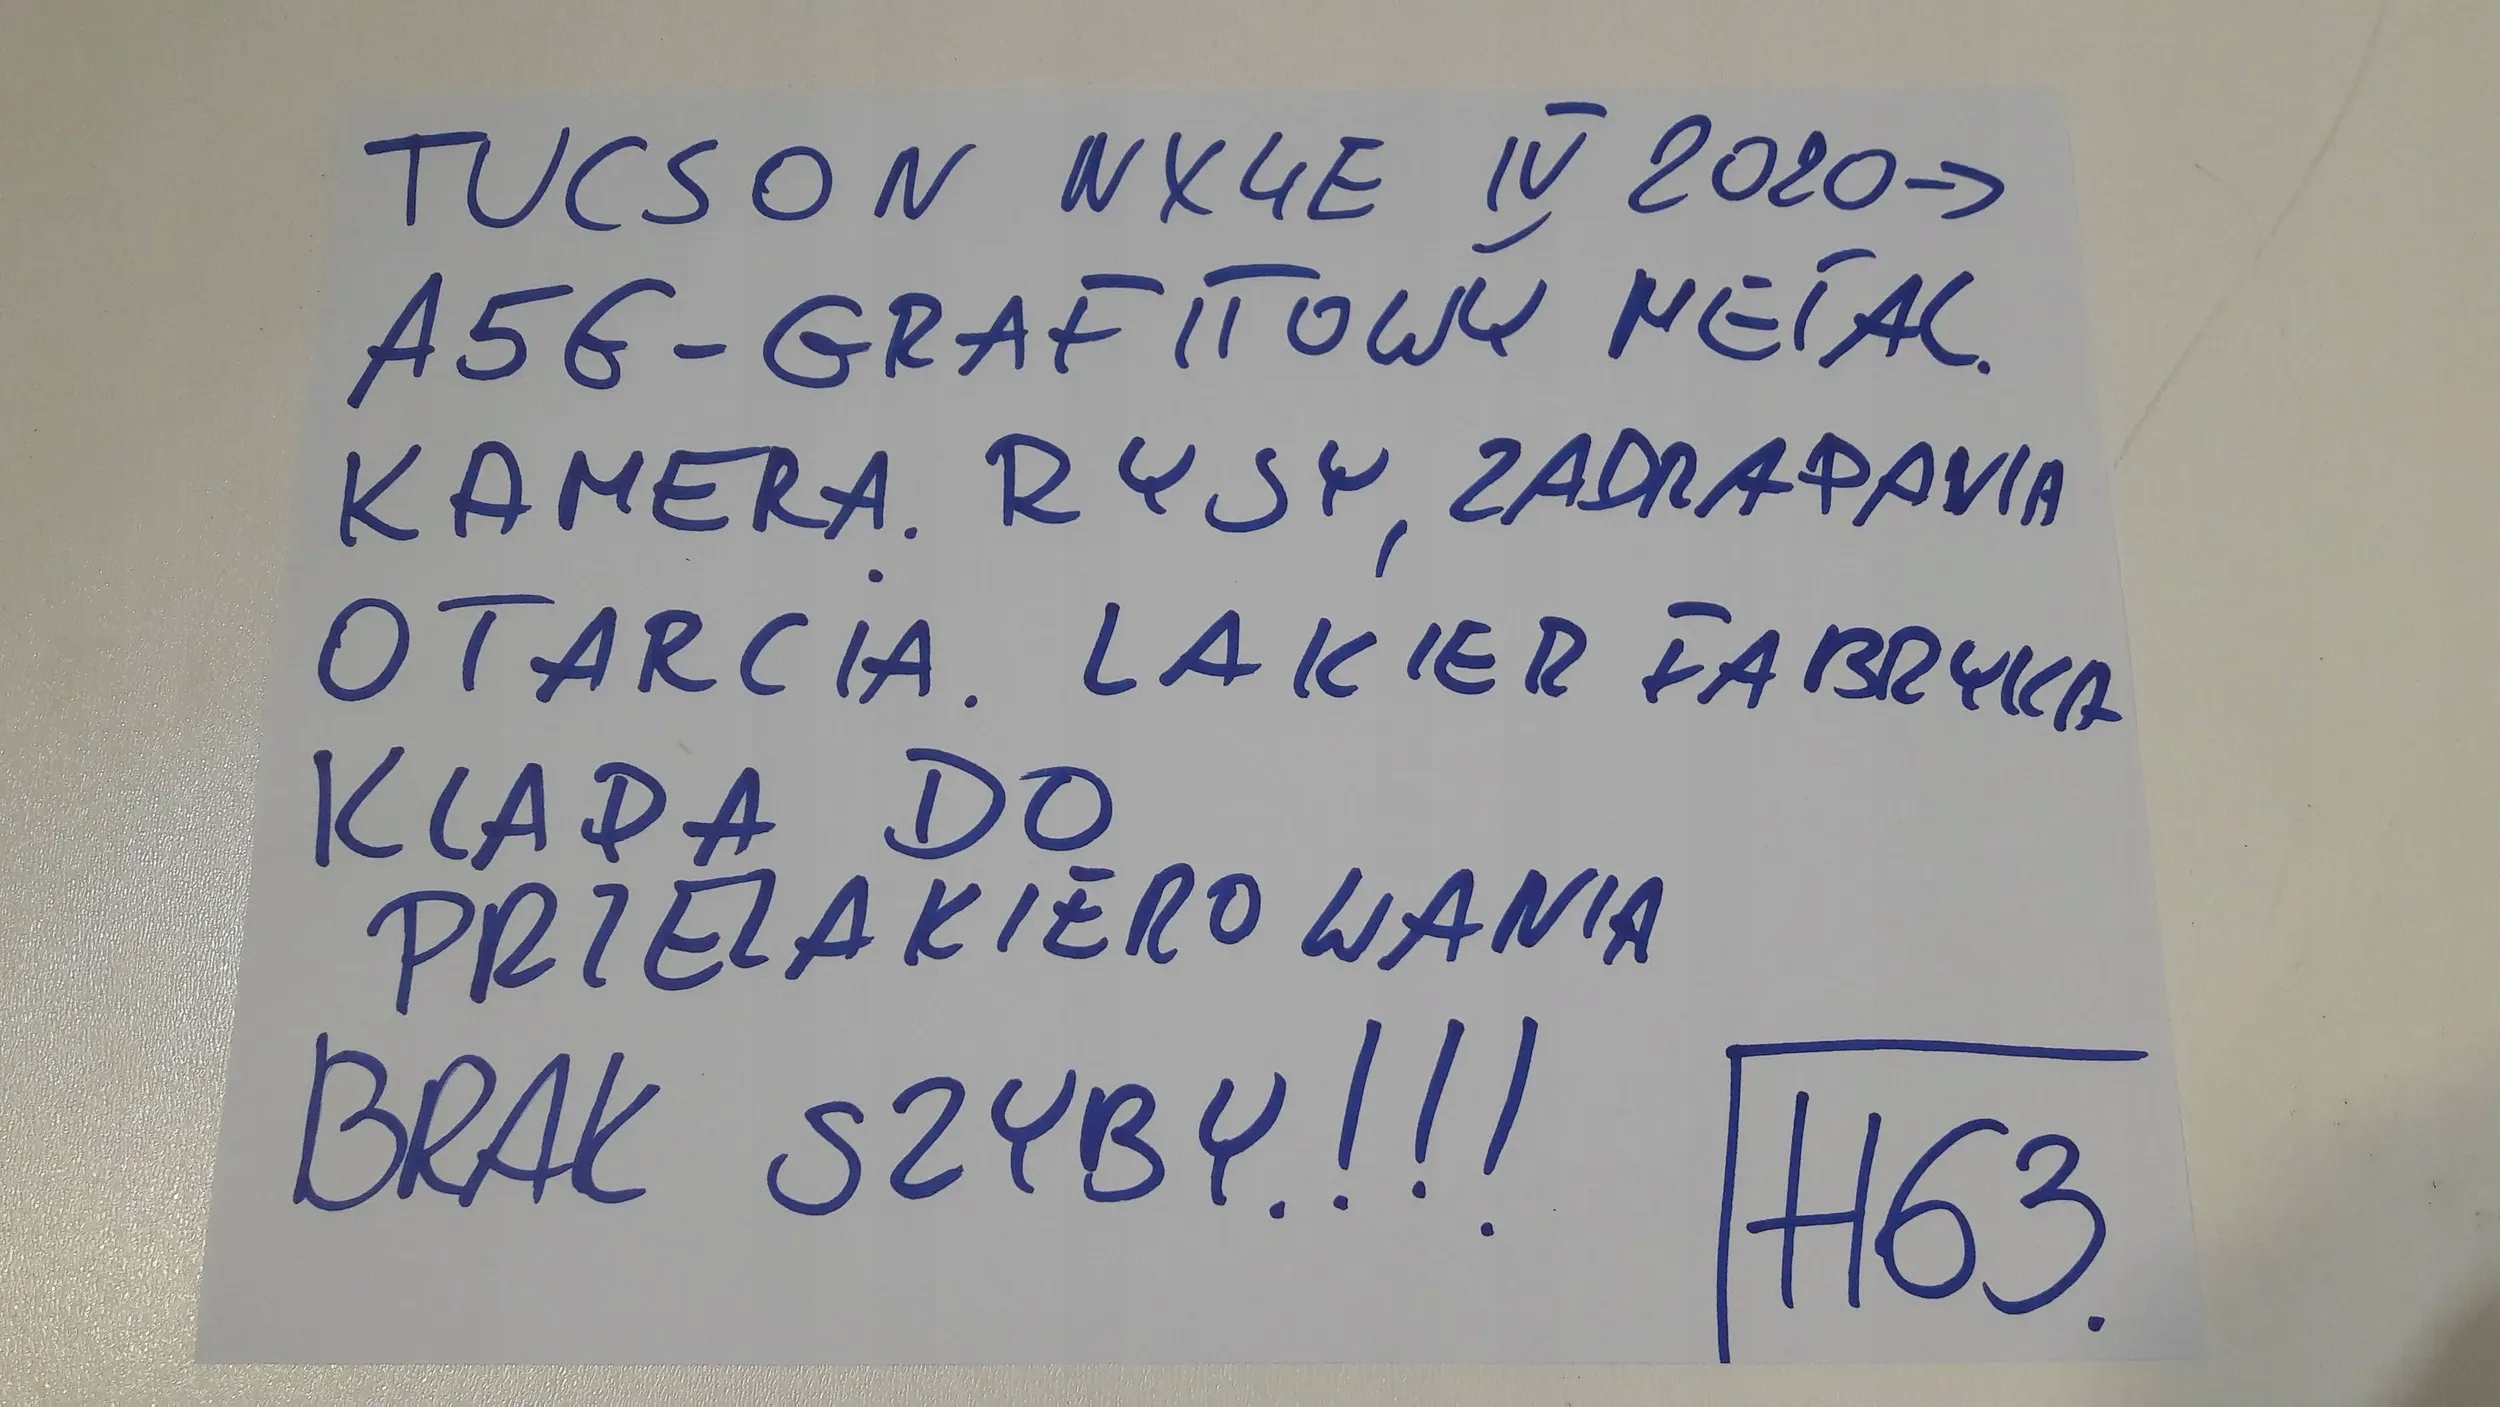 TUCSON NX4E IV 2020->
A5G-GRAFITOWY METAL.
KAMERA. RYSY, ZADRAPANIA
OTARCIA. LAKIER FABRYKA
KLAPA DO
PRZELAKIEROWANIA
BRAK SZYBY.!!!
H63.